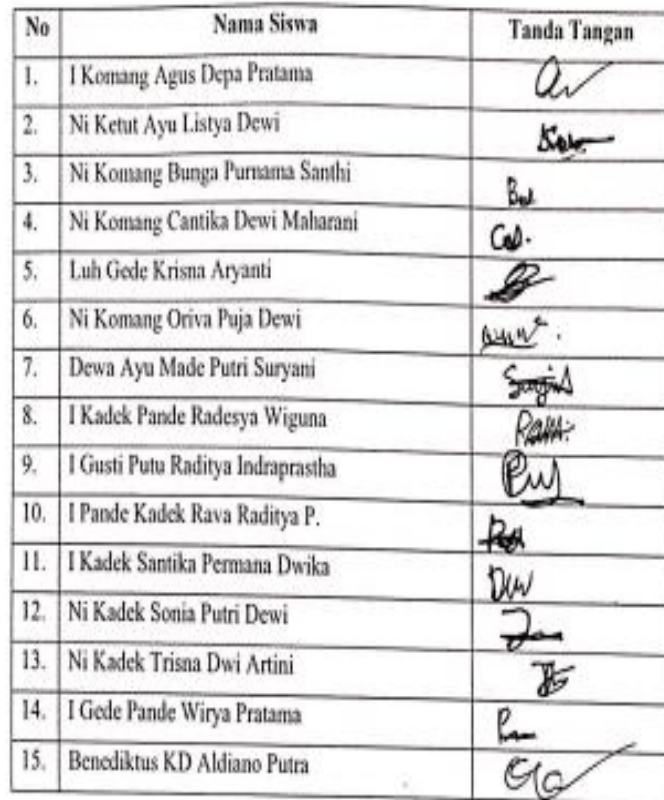 No Nama Siswa Tanda Tangan
1. I Komang Agus Depa Pratama
2. Ni Ketut Ayu Listya Dewi
3. Ni Komang Bunga Purnama Santhi
4. Ni Komang Cantika Dewi Maharani
5. Luh Gede Krisna Aryanti
6. Ni Komang Oriva Puja Dewi
7. Dewa Ayu Made Putri Suryani
8. I Kadek Pande Radesya Wiguna
9. I Gusti Putu Raditya Indraprastha
10. I Pande Kadek Rava Raditya P.
11. I Kadek Santika Permana Dwika
12. Ni Kadek Sonia Putri Dewi
13. Ni Kadek Trisna Dwi Artini
14. I Gede Pande Wirya Pratama
15. Benediktus KD Aldiano Putra